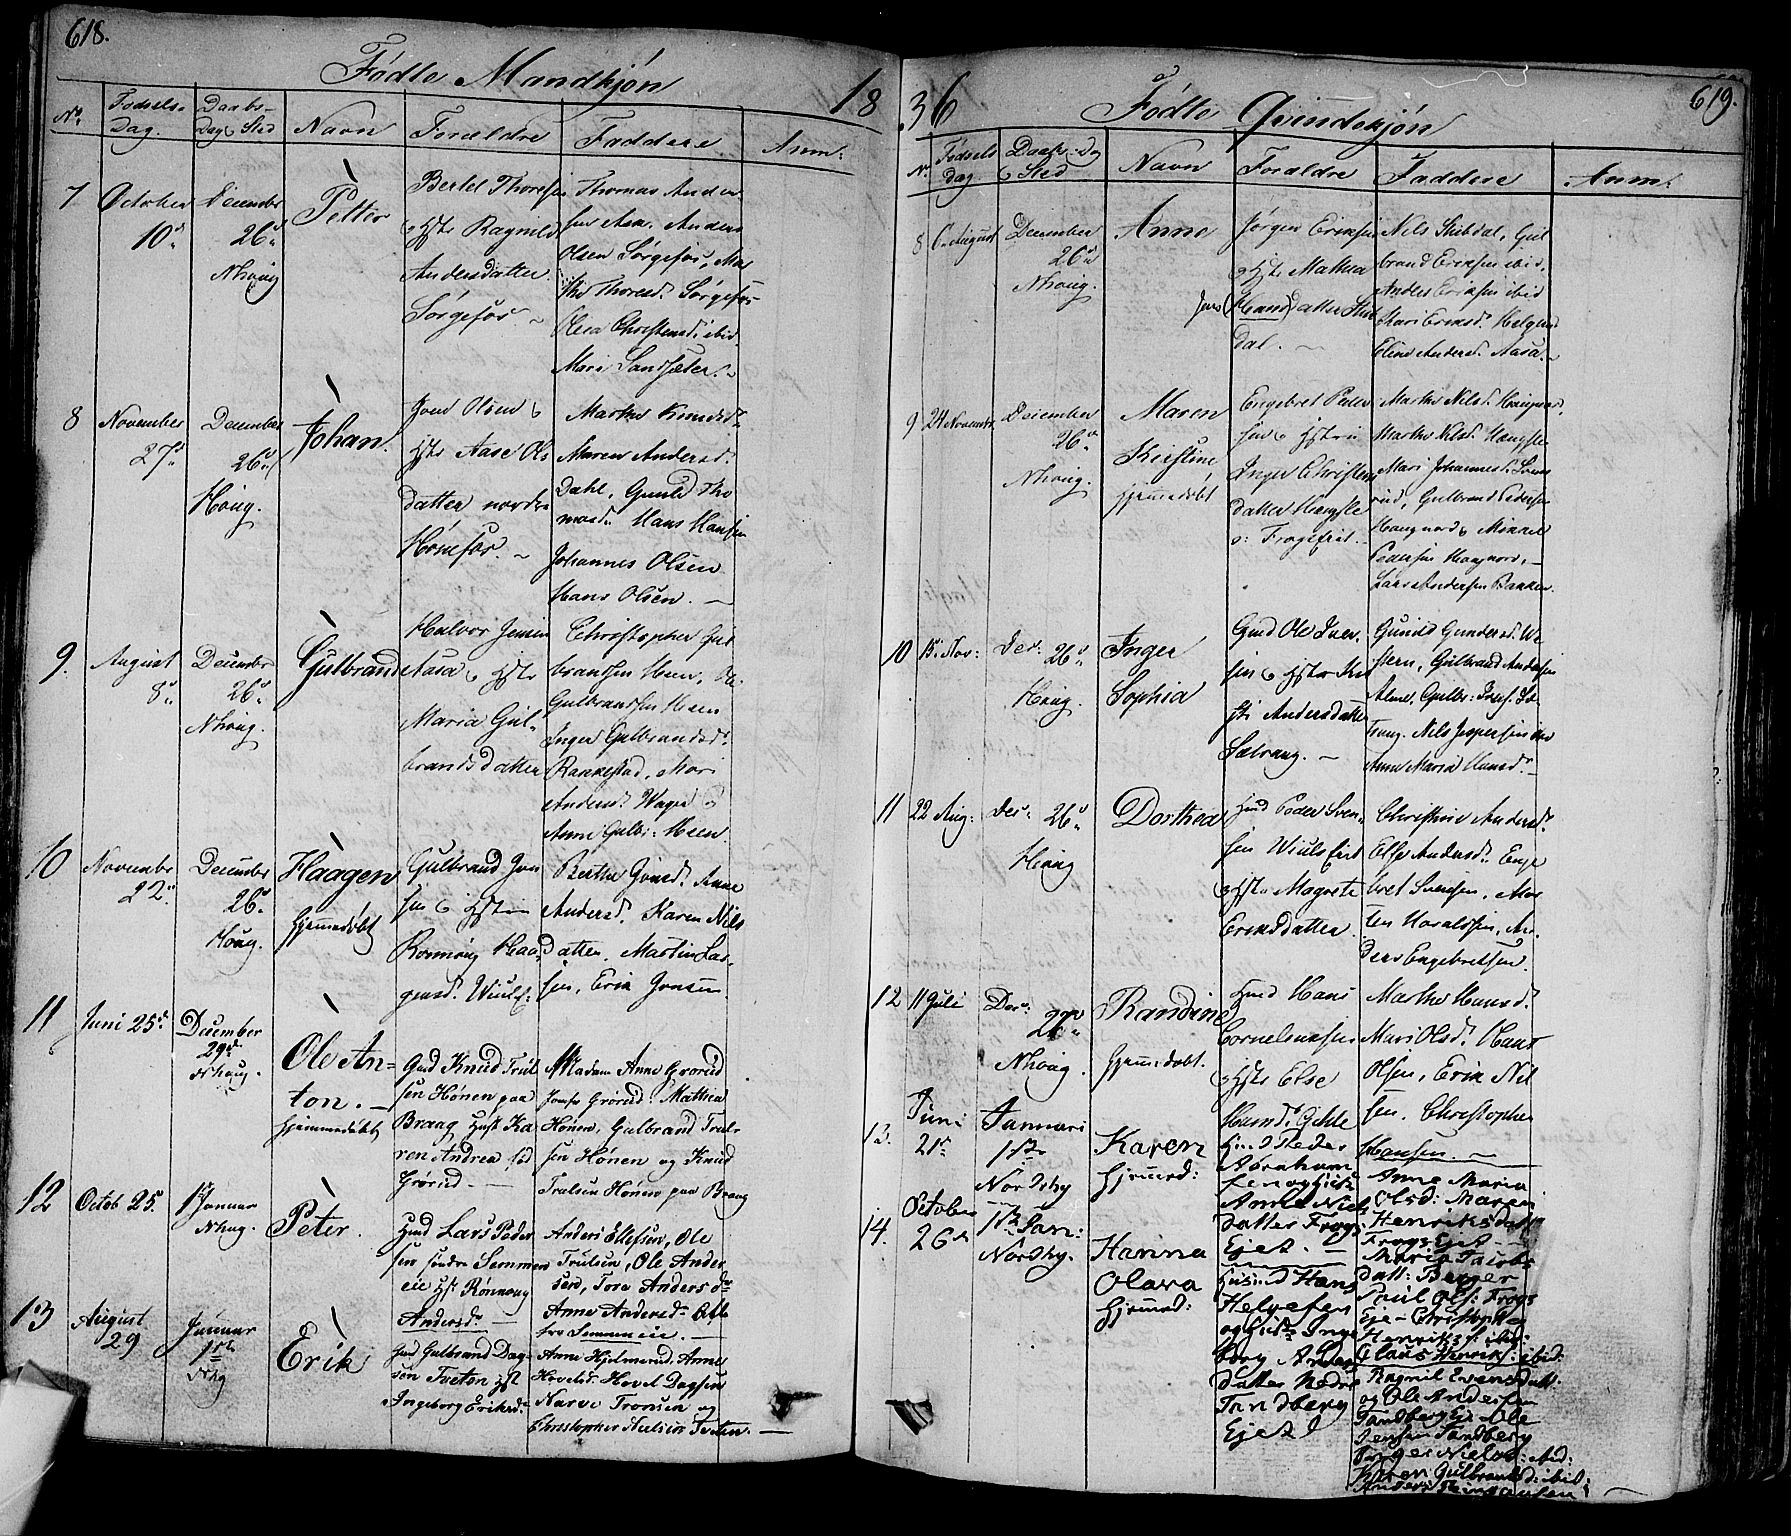 618.
Fødte Mandkjøn
18
No.
Fødsels
Dag.
Daabs-
Dag & Sted
Navn
Forældre
Faddere
Anm:
7
October
10d
December
26d
Nhoug
Petter
Bertel Thoresen
& Hstr Ragnild
Andersdatter
Sørgefos. ~
Thomas Ander
sen Ask. Anders
Olsen Sørgefos, Mar
the Thoresd. Sørgefos
Christensd. ibid
Mari Sandsæter. ~
8
November
27d
December
26d
Houg.
Johan.
Olsen &
Hstr Aase Ols
datter nordre
Hønefos. ~
Marthe Knudsd.
Maren Andersd.
Dahl, Gunild Tho
masd. Hans Hansen
Johannes Olsen
Hans Olsen. ~
9.
August
8d
December
26d
Nhoug.
Gulbrand
Halvor Jensen
Aasa & Hstr
Maria Gul-
brandsdatter
Christopher Gul
brandsen Heen, Ole
Gulbrandsen Heen
Inger Gulbrandsd.
Rakkestad, Mari
Andersd. Wager &
Anne Gulbr: Heen
10
November
22d
December
26d
Houg.
Haagen
Hjemmedøbt
Gulbrand Jon
sen & Hstrin
Rønnoug Haa
gensd. Wiulsf:
Berthe Jonsd. Anne
Andersd. Karen Nils
datter. Martin Lar-
sen, Erik Jonsen
11
Juni 25d
December
29d
Nhaug.
Ole An-
ton. ~
Hjemmedøbt
Gmd Knud Trul
sen Hønen paa
Braag Hust Ka
ren Andrea fød
Grørud. —
Madam Anne Grørud
Jomfr Grørud. Mathea
Hønen, Gulbrand Trul-
sen Hønen og Knud
Trulsen Hønen paa Braag
12
Octob 25.
1 Januar
Nhag.
Peter.
Hmd Lars Peder
sen søndre Semmen
eie Hst Rønnaug
Andersd. —
Anders Ellefsen, Ole
Trulsen, Ole Ander
sen, Tora Andersdr
Anne Andersdr
Semmeneie. —
13
August
29
Januar
1ste
Nhg
Erik
Gmd Gulbrand Dag-
sen Tveten Hst
Ingeborg Eriksdr
Anne Hjelmerud. Anne
Hovelsd. Hovel Dagsen
Narve Tronsen og
Christopher Nielsen Tveten. —
36
Fødte Qvindekjøn
619.
Nr.
Fødsels
dag.
Daabs-Dag
& Sted
Navn
Forældre
Faddere
Anm:
8
6. August
December
26d
Nhoug.
Anne
Jørgen Eriksen
& Hstr Mathea
Jens (Hans) datter Stub
dal. ~
Nils Stubdal, Gul
brand Eriksen ibid,
Anders Eriksen ibid
Kari Eriksd. Helgerud
Eline Andersd. Aasa. ~
9
24 November
December
26d
Nhoug.
Maren
Kirstine
hjemmedøbt
Engebret Peder
sen & Hstrin
Inger Christens
datter Hengsle
o: Frogefrit. ~
Marthe Nilsd. Haugnord,
Marthe Nilsd. Hengsle
Mari Johannesd. Svens
rud, Gulbrand Pedersen
Haugnord & Mikkel
Pedersen Haugnord, ~
Lars Andersen Bakken
10
15. Nov:
Dec: 26d
Houg.
Inger
Sophia
Gmd Ole Iver
sen & Hstr Kir
sti Andersdatter
Sætrang. —
Gunild Gundersd. We
stern, Gulbrand Andersen
Alme, Gulbr: Ivers. Sæ
trang. Nils Jespersen ibid
Anne Maria Hansd. ~
11
22 Aug:
Dec: 26d
Houg
Dorthea
Hmd Peder Sven-
sen Wiulsfert
& Hstr Magrete
Eriksdatter
Christine Andersd.
Else Andersd. Enge
bret Svensen, Mor
ten Haraldsen, An-
ders Engebretsen.
12
11 Juli
Dec:
Nhoug.
Randine
Hjemmedøbt.
Hmd Hans
Corneliussen
& Hstr Else
Hansd. Gihle
Marthe Hansd.
Mari Olsd. Hans
Olsen, Erik Nil
sen. Christopher
Hansen. ~
13.
Juni
21d
Januari
1ste
Nordrhg
Karen
Hjemmd:
Peder
Abraham
sen og Hustr
Anne Niels
datter Frogs
Ejet. —
Anne Maria
Olsd: Maren
Henriksdatt
Frogs Ejet —
Maria Jacobs
datt: Berger
Paul Ols: Frogs
Eje – Christopher
Henriks: ibid:
Claus Henriks: ibid:
14.
October
26d
1ste Jan:
Nordhg.
Hanna
Olava
Hjemmd:
Husmd Hans
Helgesen
og Hustr Inge
borg Anders
datter Nedre
Tandberg
Ejet
Ragnil Evensdatt.
og Ole Andersen
Tandberg Eje – Ole
Jensen Tandberg
Inger Nielsd: ibid:
Karen Gulbrandsd: ibid: